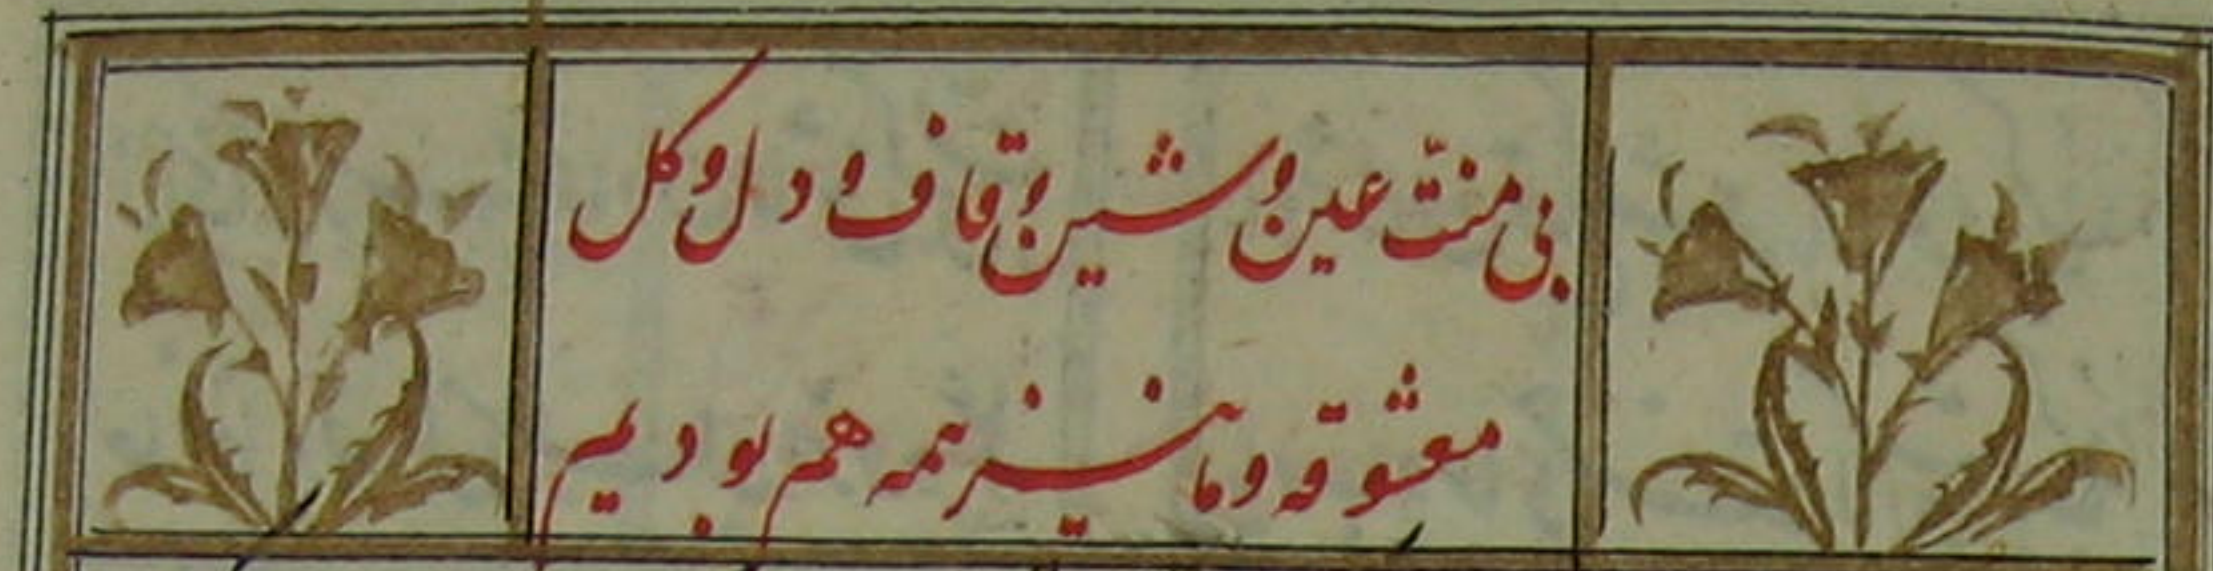 بی منتّ عین و شین و قاف و دل و کل
معشوقه و ما نیز همه هم بودیم